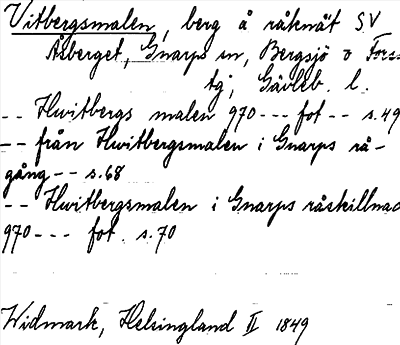 Vitbergsmalen, berg å råknät SV
Åsberget, Gnarps sn, Bergsjö o Forsa
tg; Gävleb. l.
-- Hwitbergs malen 970 --- fot -- s.49
-- från Hwitbergsmalen i Gnarps rå-
gång -- s.68
-- Hwitbergsmalen i Gnarps råskillnad
970 --- fot. s.70
Widmark, Helsingland II 1849